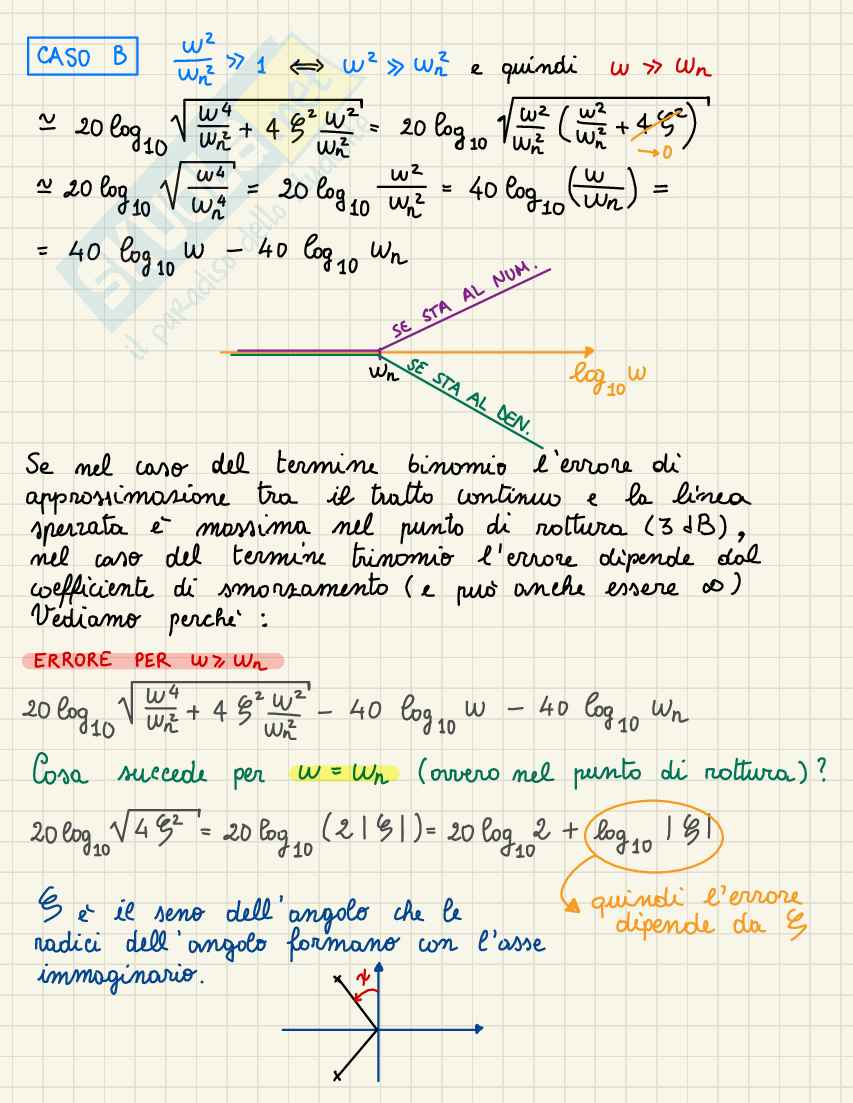 CASO B ω²/ωn² ≫ 1 ⟺ ω² ≫ ωn² e quindi ω ≫ ωn
≃ 20 log10 √(ω4/ωn² + 4 ξ² ω²/ωn²) = 20 log10 √(ω²/ωn² (ω²/ωn² + 4ξ²))
→0
≃ 20 log10 √(ω4/ωn4) = 20 log10 ω²/ωn² = 40 log10 (ω/ωn) =
= 40 log10 ω − 40 log10 ωn
SE STA AL NUM.
ωn
log10 ω
SE STA AL DEN.
Se nel caso del termine binomio l'errore di
approssimazione tra il tratto continuo e la linea
spezzata è massima nel punto di rottura (3 dB),
nel caso del termine trinomio l'errore dipende dal
coefficiente di smorzamento (e può anche essere ∞)
Vediamo perchè:
ERRORE PER ω ⩾ ωn
20 log10 √(ω4/ωn² + 4 ξ² ω²/ωn²) − 40 log10 ω − 40 log10 ωn
Cosa succede per ω = ωn (ovvero nel punto di rottura)?
20 log10 √(4 ξ²) = 20 log10 (2 |ξ|) = 20 log10 2 + log10 |ξ|
quindi l'errore
dipende da ξ
ξ è il seno dell'angolo che le
radici dell'angolo formano con l'asse
immaginario.
SKUOLA.net
il paradiso dello studente